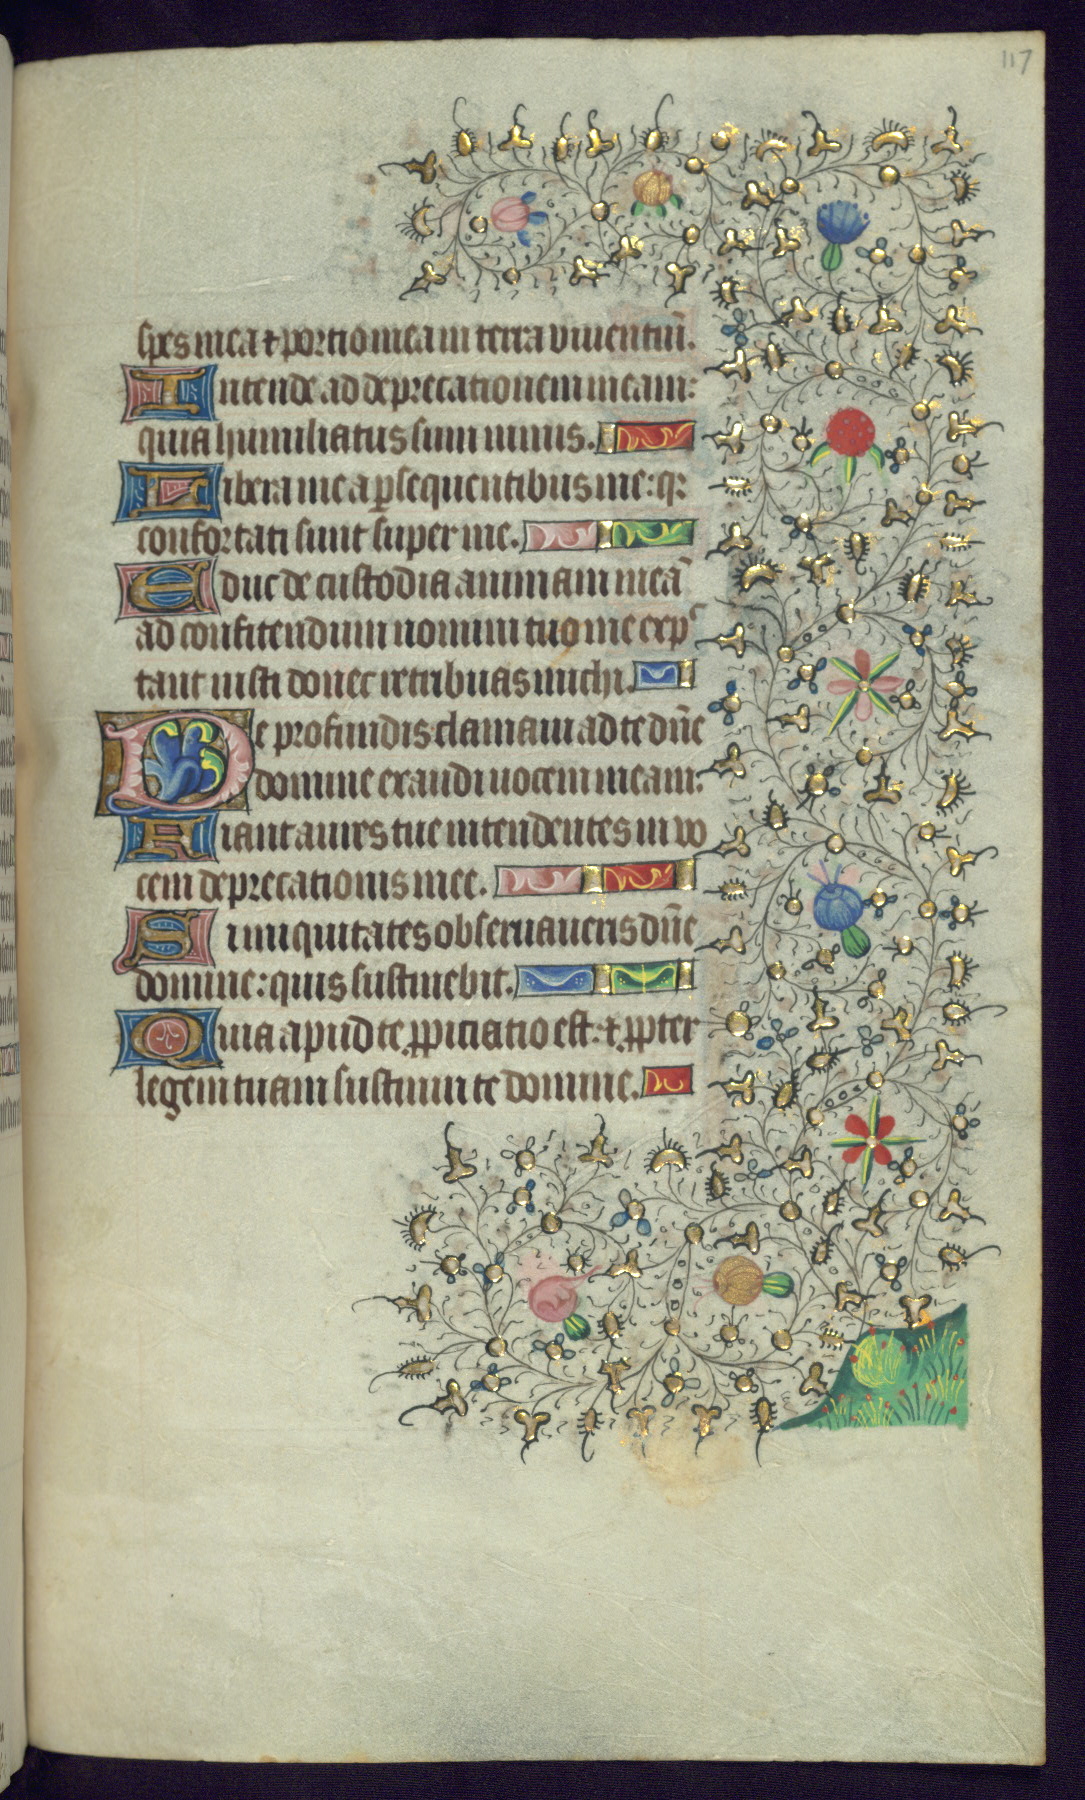 117
spes mea ⁊ portio mea in terra viuentiū.
Intende ad deprecationem meam:
quia humiliatus sum nimis.
Libera me a ꝑsequentibus me: qꝛ
confortati sunt super me.
Educ de custodia animam meā
ad confitendum nomini tuo me expᶜ
tant iusti donec retribuas michi.
De profundis clamaui ad te dn̄e
domine exaudi uocem meam:
Fiant aures tue intendentes in vo
cem deprecationis mee.
Si iniquitates obseruaueris dn̄e
domine: quis sustinebit.
Quia apud te ꝓpiciatio est: ⁊ ꝓpter
legem tuam sustinui te domine.